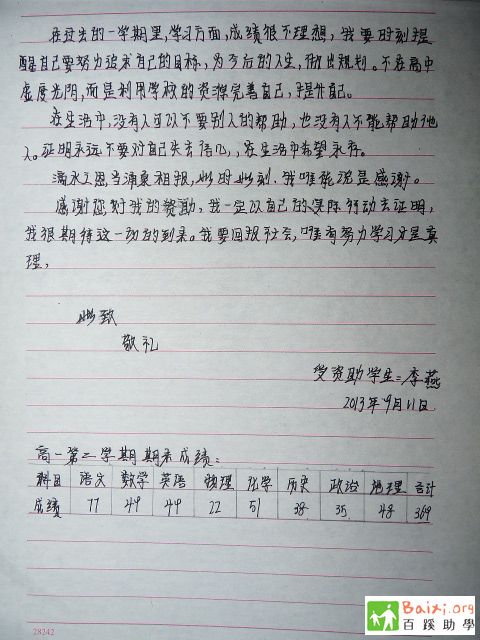 在过去的一学期里,学习方面,成绩很不理想,我要时刻提
醒自己要努力追求自己的目标,为今后的人生,做出规划。不在高中
虚度光阴,而是利用学校的资源完善自己,提升自己。
在生活中,没有人可以不要别人的帮助,也没有人不能帮助他
人。证明永远不要对自己失去信心,在生活中希望永存。
滴水之恩当涌泉相报,此时此刻,我唯能说是感谢。
感谢您对我的资助,我一定以自己的实际行动去证明,
我很期待这一切的到来。我要回报社会,唯有努力学习才是真
理,
此致
敬礼
受资助学生:李燕
2013年9月11日
高一第二学期期末成绩:
科目 语文 数学 英语 物理 化学 历史 政治 地理 合计
成绩 77 49 49 22 51 38 35 48 369
28242
Baixi.org
百蹊助學